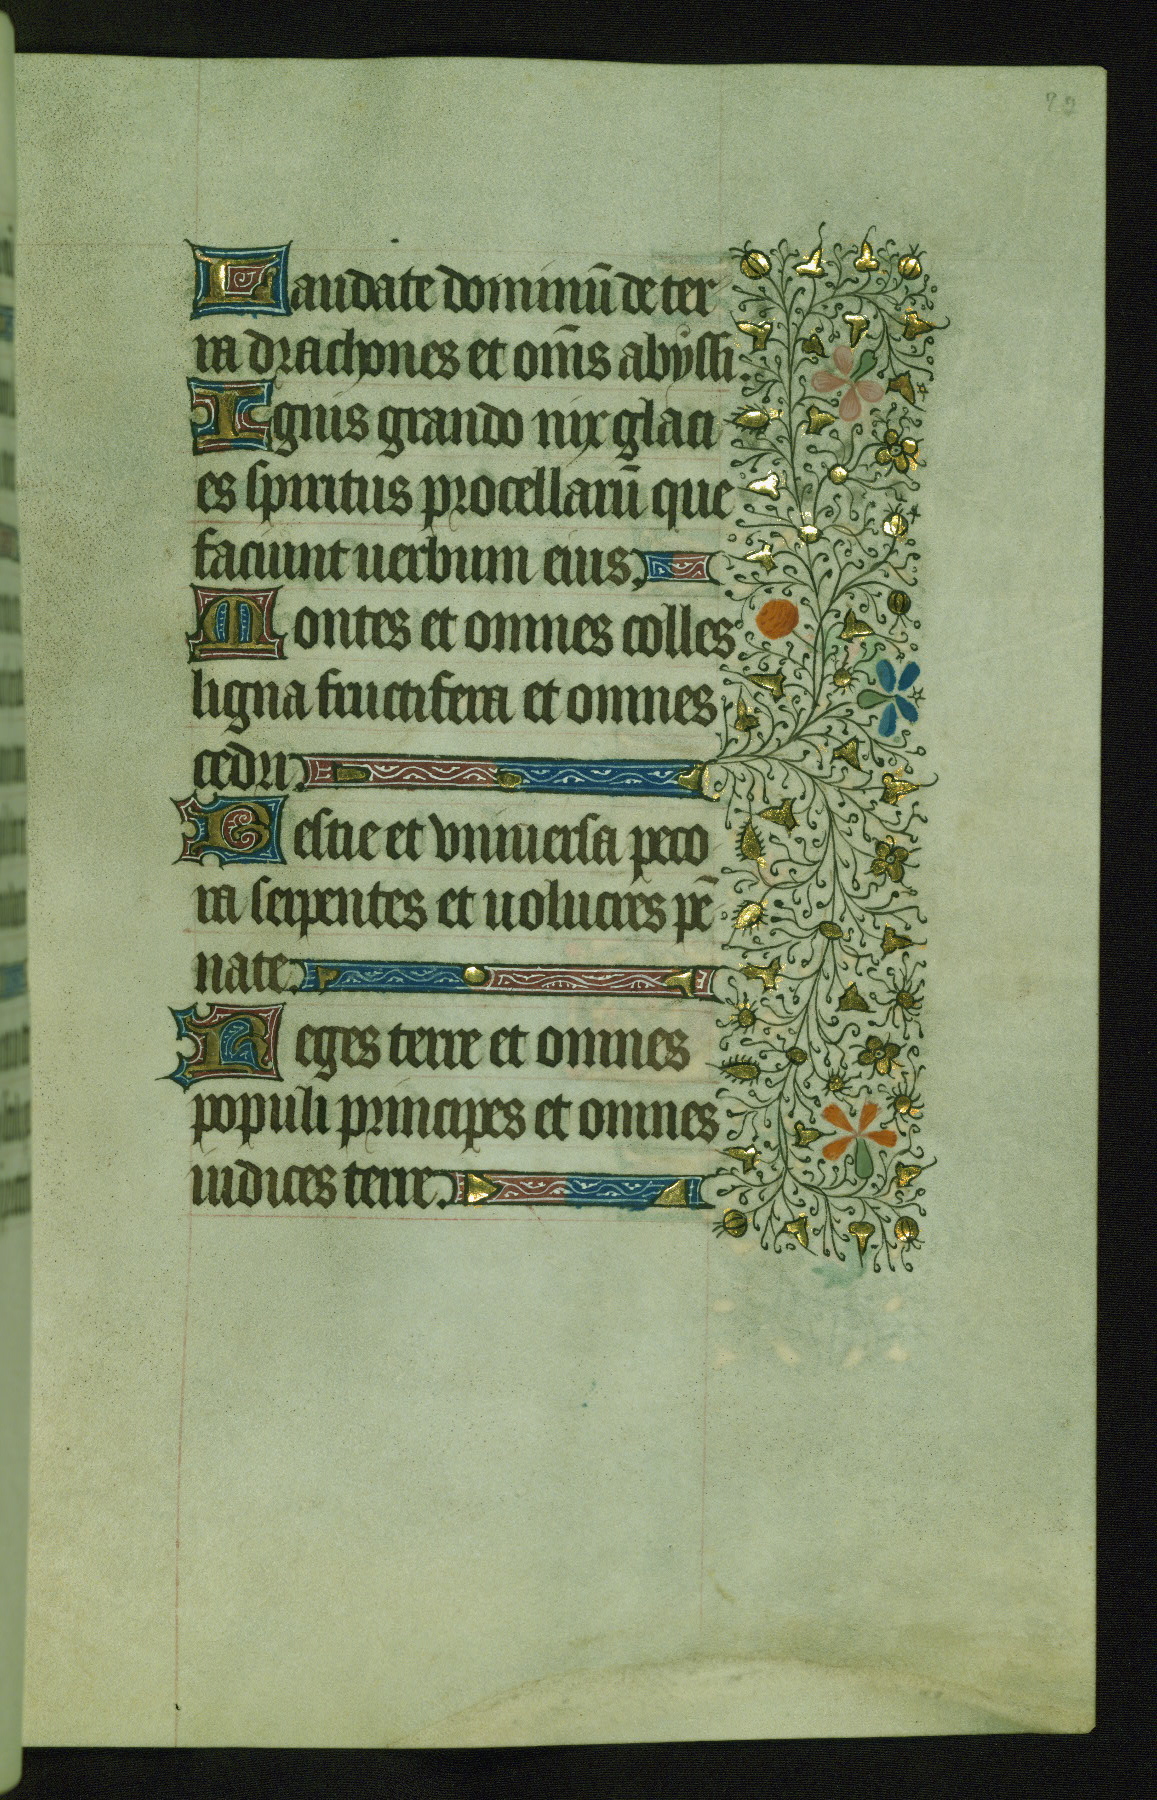 Laudate dominū de ter
ra drachones et om̄s abyssi.
Ignis grando nix glaci
es spiritus procellarū que
faciunt uerbum eius
Montes et omnes colles
ligna fructifera et omnes
cedri
Bestie et vniuersa peco
ra serpentes et uolucres pē
nate
Reges terre et omnes
populi principes et omnes
iudices terre.